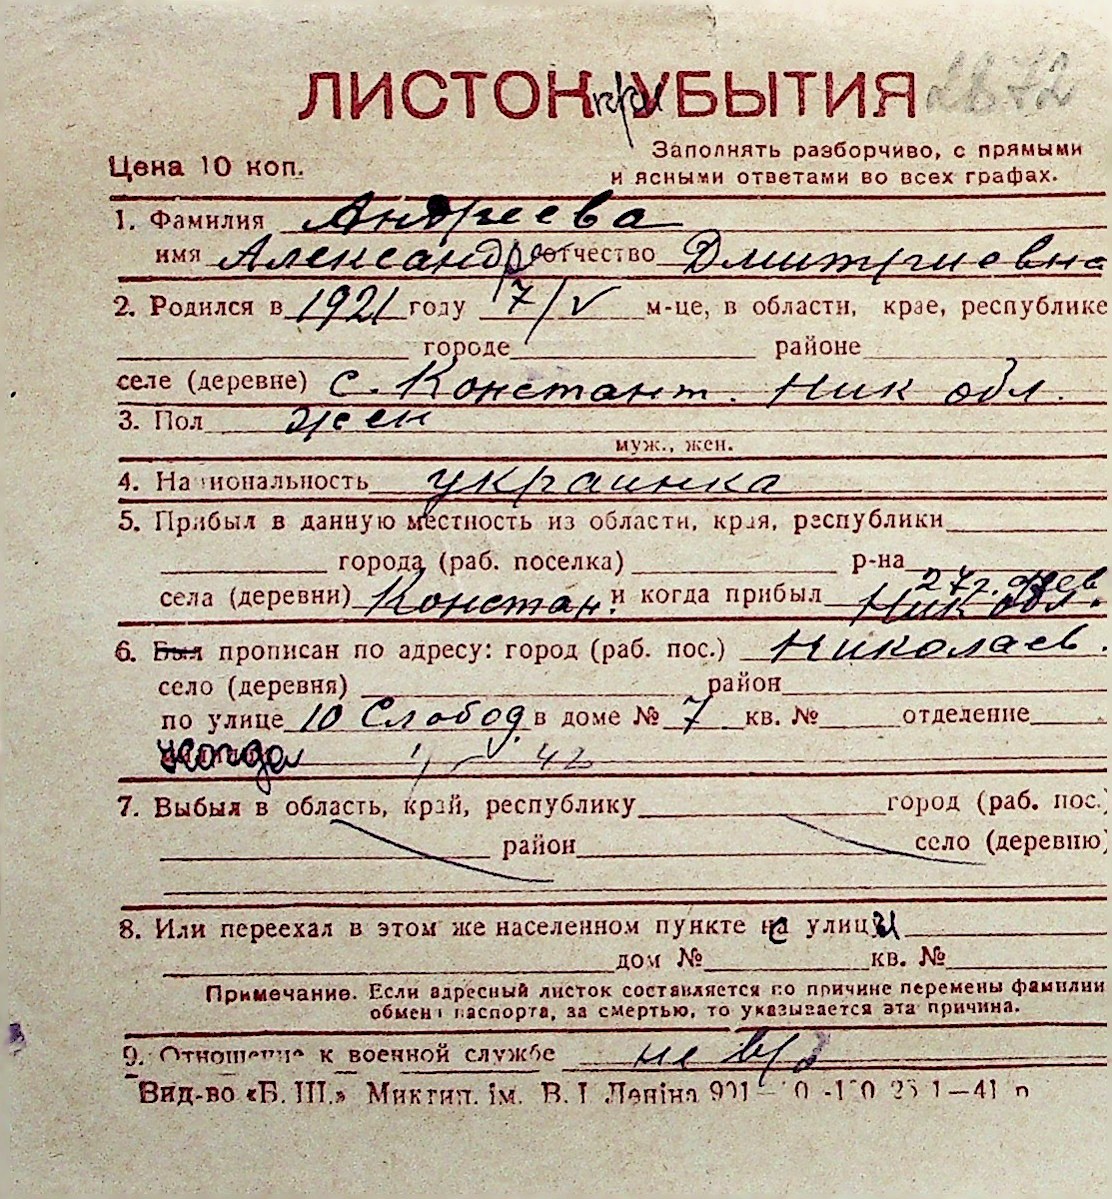 ЛИСТОК при УБЫТИЯ 2872
Цена 10 коп.
Заполнять разборчиво, с прямыми
и ясными ответами во всех графах.
1. Фамилия Андреева
имя Александра отчество Дмитриевна
2. Родился в 1921 году 7/V м-це, в области, крае, республике
городе районе
селе (деревне) с. Констант. Ник обл.
3. Пол жен
муж., жен.
4. Национальность украинка
5. Прибыл в данную местность из области, края, республики
города (раб. поселка) р-на
села (деревни) Констан. и когда прибыл 27г. фев Ник обл.
6. Был прописан по адресу: город (раб. пос.) Николаев.
село (деревня) район
по улице 10 Слобод. в доме № 7 кв. № отделение
когда 42
7. Выбыл в область, край, республику город (раб. пос.)
район село (деревню)
8. Или переехал в этом же населенном пункте с улицы
дом № кв. №
Примечание. Если адресный листок составляется по причине перемены фамилии
обмена паспорта, за смертью, то указывается эта причина.
9. Отношение к военной службе не в/о
Вид-во «Б. Ш.» Миктип. ім. В. І Леніна 901